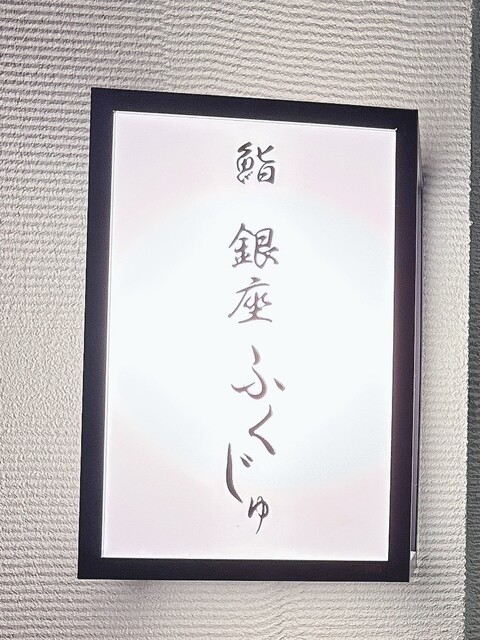 鮨 銀座 ふくじゅ